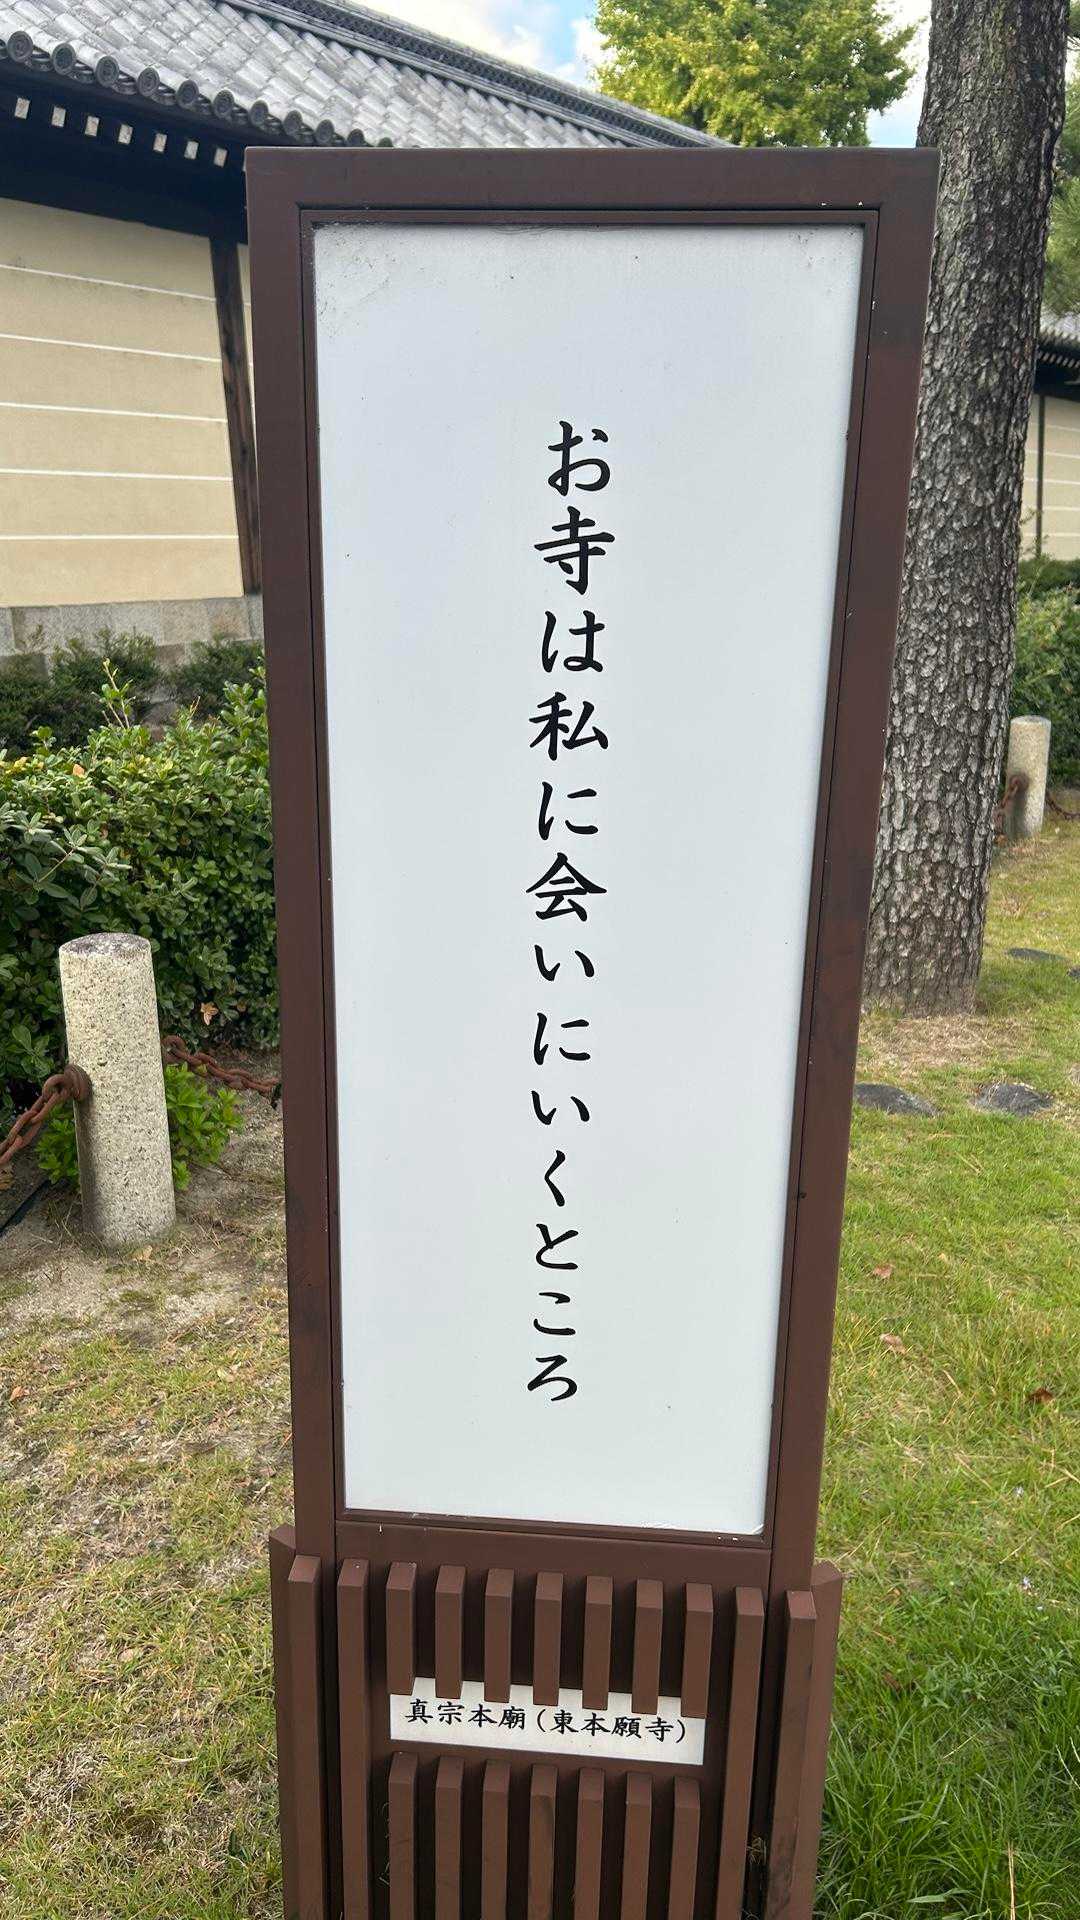 お寺は私に会いにいくところ
真宗本廟(東本願寺)